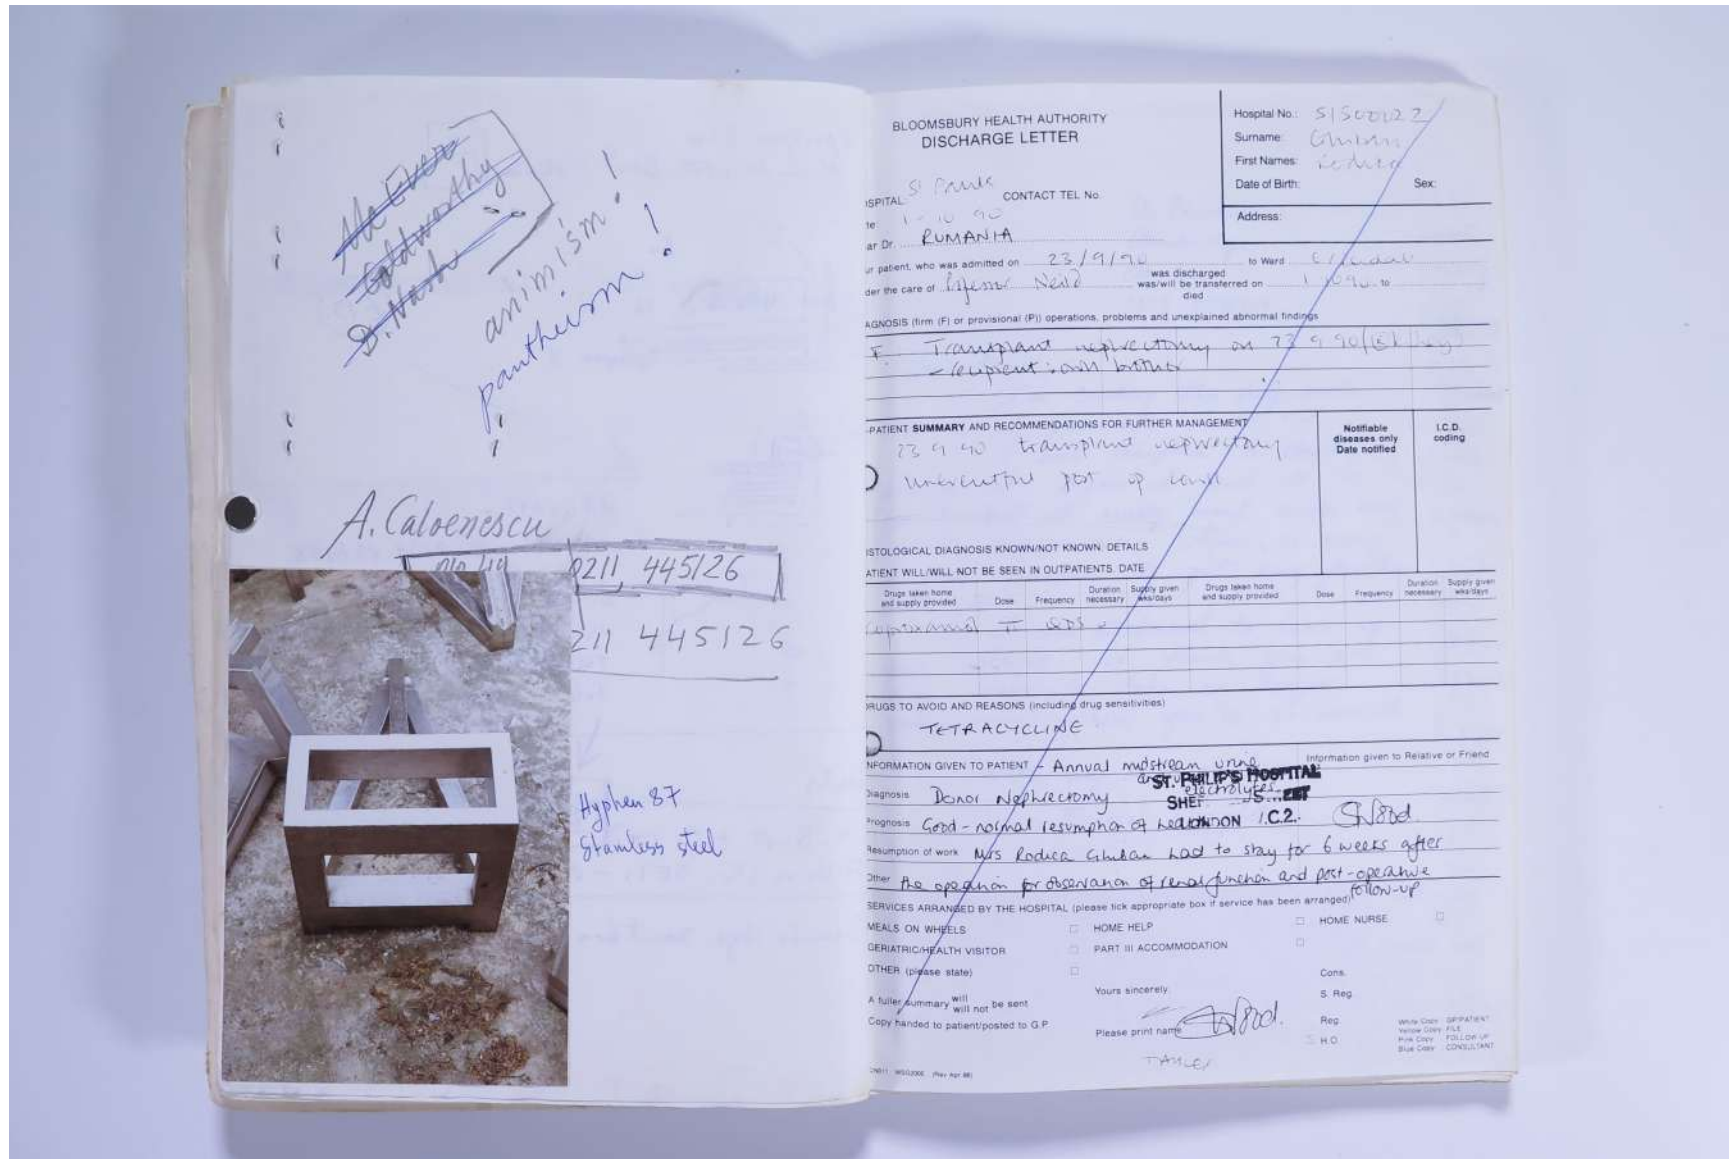 Mc Ewen
Goldworthy
D. Nash
animism!
pantheism!
A. Caloenescu
0211 445126
211 445126
Hyphen 87
Stainless steel
BLOOMSBURY HEALTH AUTHORITY
DISCHARGE LETTER
Hospital No.:
Surname:
First Names:
Date of Birth: Sex:
Address:
St Pauls
CONTACT TEL No
1-10 90
ar Dr. RUMANIA
patient, who was admitted on 23/9/90 to Ward
was discharged
the care of Professor Neild was/will be transferred on to
died
AGNOSIS (firm (F) or provisional (P)) operations, problems and unexplained abnormal findings
F Transplant nephrectomy on 23 9 90
- recipient: own brother
-PATIENT SUMMARY AND RECOMMENDATIONS FOR FURTHER MANAGEMENT
Notifiable diseases only Date notified
I.C.D. coding
23 9 90 transplant nephrectomy
uneventful post op
STOLOGICAL DIAGNOSIS KNOWN/NOT KNOWN. DETAILS
ATIENT WILL/WILL NOT BE SEEN IN OUTPATIENTS. DATE
Drugs taken home and supply provided Dose Frequency Duration necessary Supply given wks/days Drugs taken home and supply provided Dose Frequency Duration necessary Supply given wks/days
RUGS TO AVOID AND REASONS (including drug sensitivities)
TETRACYCLINE
NFORMATION GIVEN TO PATIENT - Annual midstream urine Information given to Relative or Friend
electrolytes
ST. PHILIP'S HOSPITAL
Diagnosis Donor Nephrectomy
LONDON
Prognosis Good - normal resumption of
Resumption of work Mrs Rodica Ghulan had to stay for 6 weeks after
Other the operation for observation of renal function and post-operative
follow-up
SERVICES ARRANGED BY THE HOSPITAL (please tick appropriate box if service has been arranged)
MEALS ON WHEELS HOME HELP HOME NURSE
GERIATRIC/HEALTH VISITOR PART III ACCOMMODATION
OTHER (please state)
Cons.
A fuller summary will / will not be sent Yours sincerely S. Reg
Copy handed to patient/posted to G.P. Please print name Reg.
H.O.
White Copy GP/PATIENT
Yellow Copy FILE
Pink Copy FOLLOW UP
Blue Copy CONSULTANT